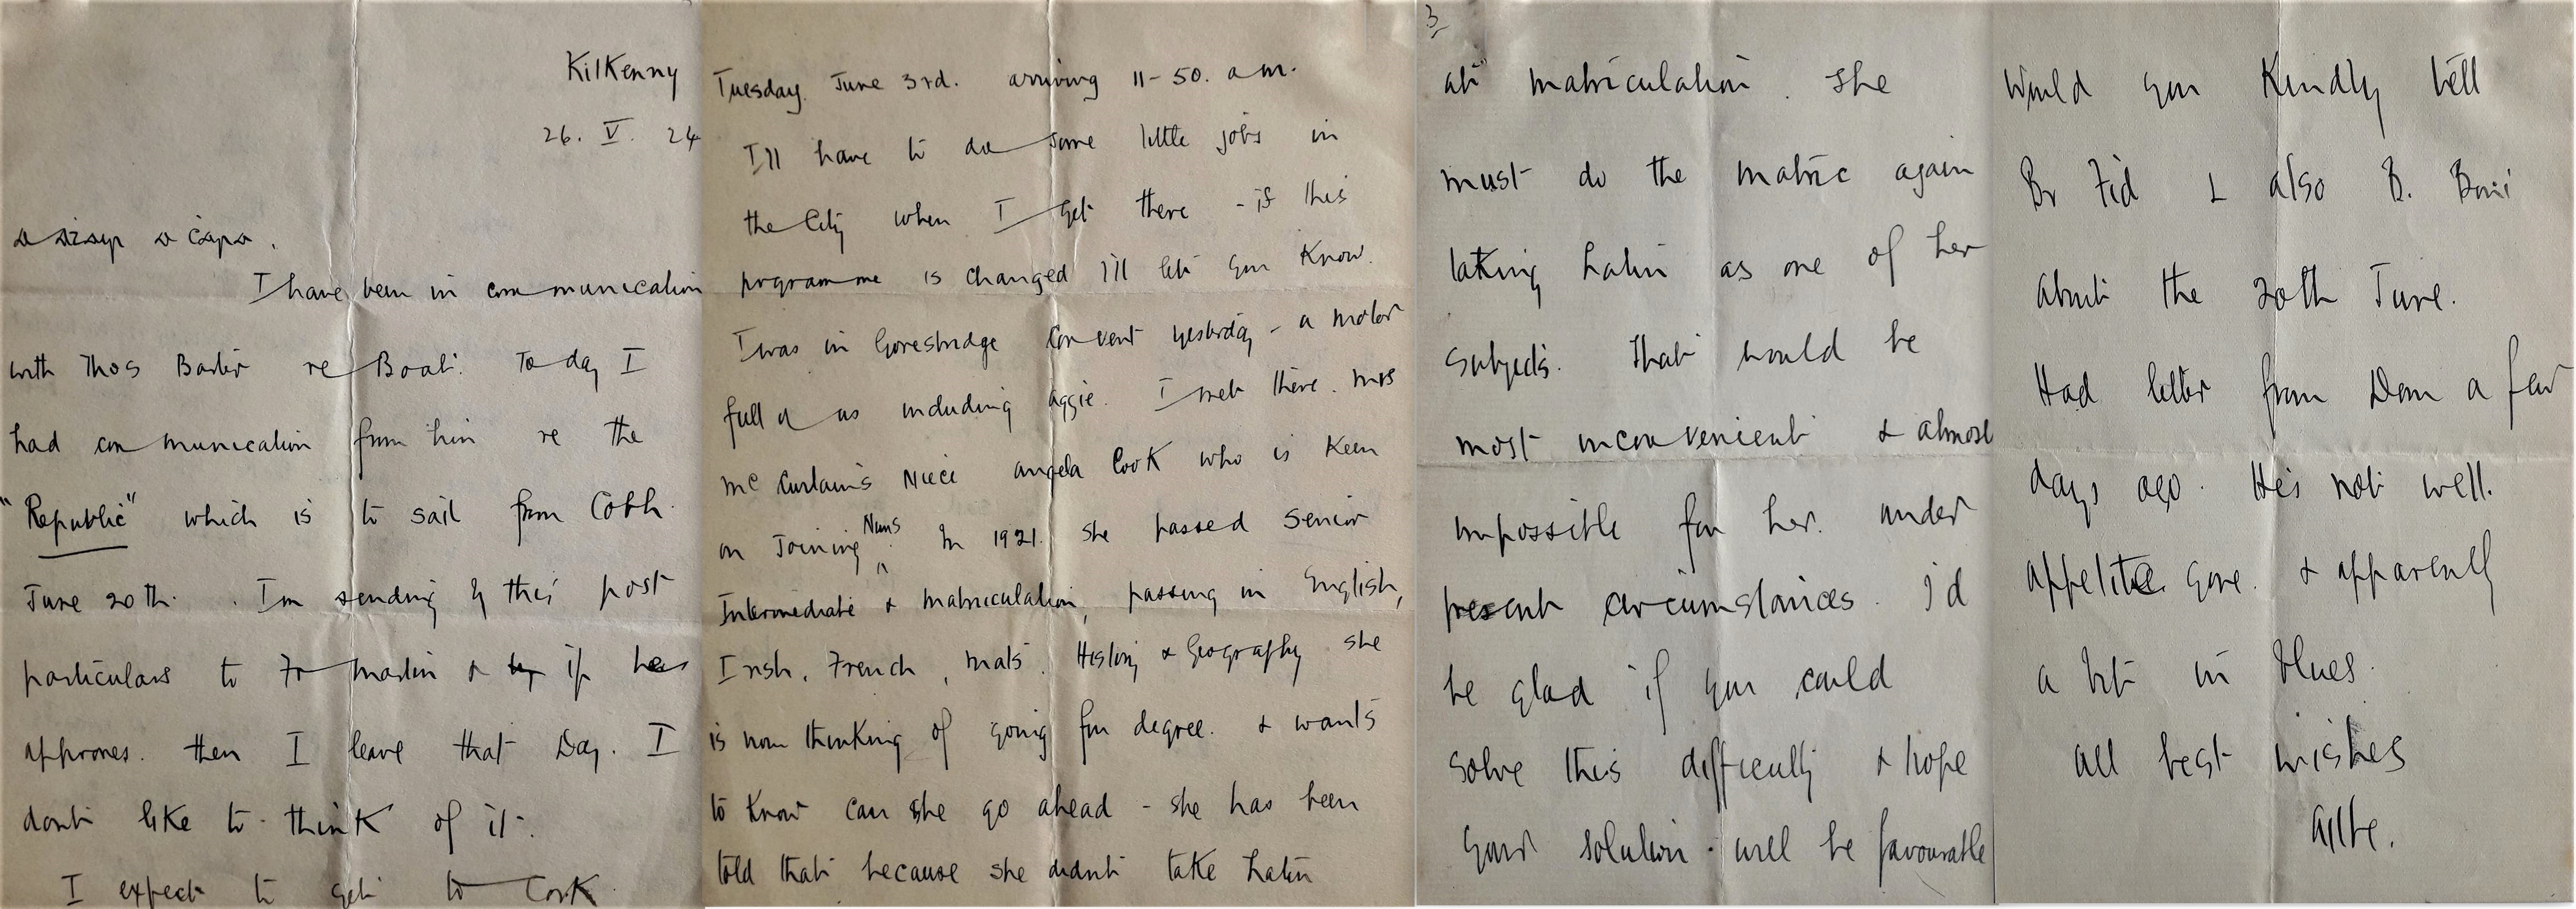 Kilkenny
26. V. 24
a
I have been in communication
with Thos Barter re Boat. To day I
had communication from him re the
"Republic" which is to sail from Cobh
June 20th. I'm sending by this post
particulars to Fr Martin & by if he
approves. then I leave that Day. I
don't like to think of it.
I expect to get to Cork
Tuesday June 3rd. arriving 11-50. a.m.
I'll have to do some little jobs in
the City when I get there - if this
programme is changed I'll let you know.
I was in Goresbridge Convent yesterday - a motor
full of us including Aggie. I met there. Mrs
McCurtain's Niece Angela Cook who is keen
on Joining Nuns. In 1921 she passed Senior
Intermediate & matriculation, passing in English,
Irish, French, Mats. History & Geography she
is now thinking of going for degree. & wants
to know can she go ahead - she has been
told that because she didn't take Latin
3
at matriculation. She
must do the matric again
taking Latin as one of her
subjects. That would be
most inconvenient & almost
impossible for her. under
present circumstances. I'd
be glad if you could
solve this difficulty & hope
your solution will be favourable
Would you kindly tell
Br Fid & also B.
about the 20th June.
Had letter from Dom a few
days ago. He's not well.
appetite gone. & apparently
a bit in blues.
all best wishes